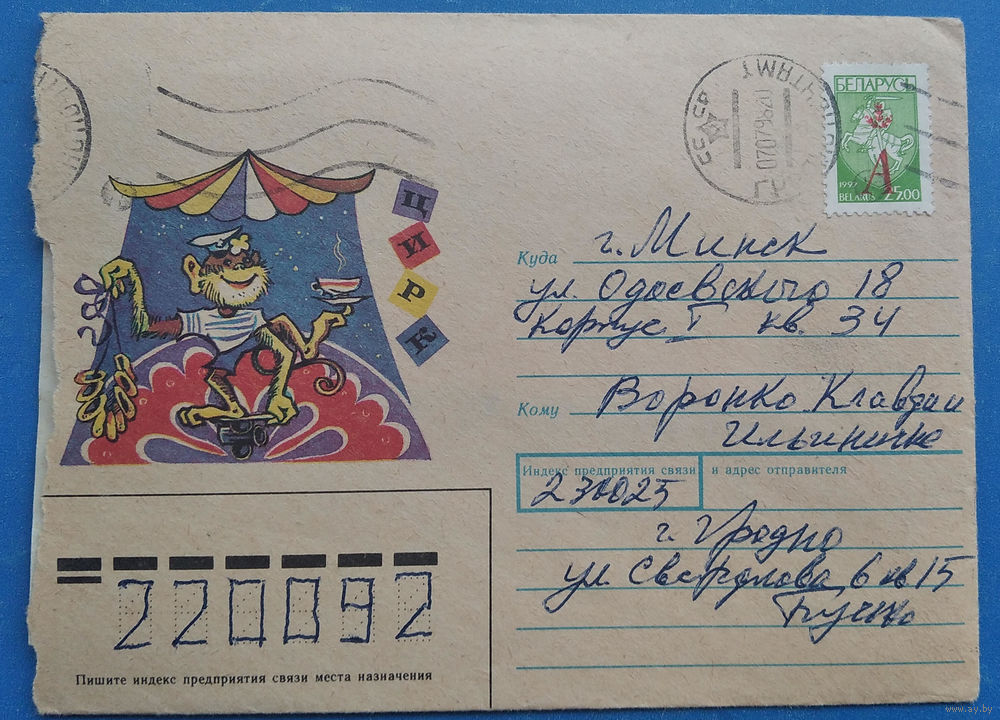 БЕЛАРУСЬ
1997
А
25.00
BELARUS
070798 20
ЦИРК
Куда г. Минск
ул. Одоевского 18
корпус I кв. 34
Кому Воронко Клавдии
Ильиничне
Индекс предприятия связи и адрес отправителя
230025
г. Гродно
ул. Свердлова 6 кв 15
220092
Пишите индекс предприятия связи места назначения
www.ay.by